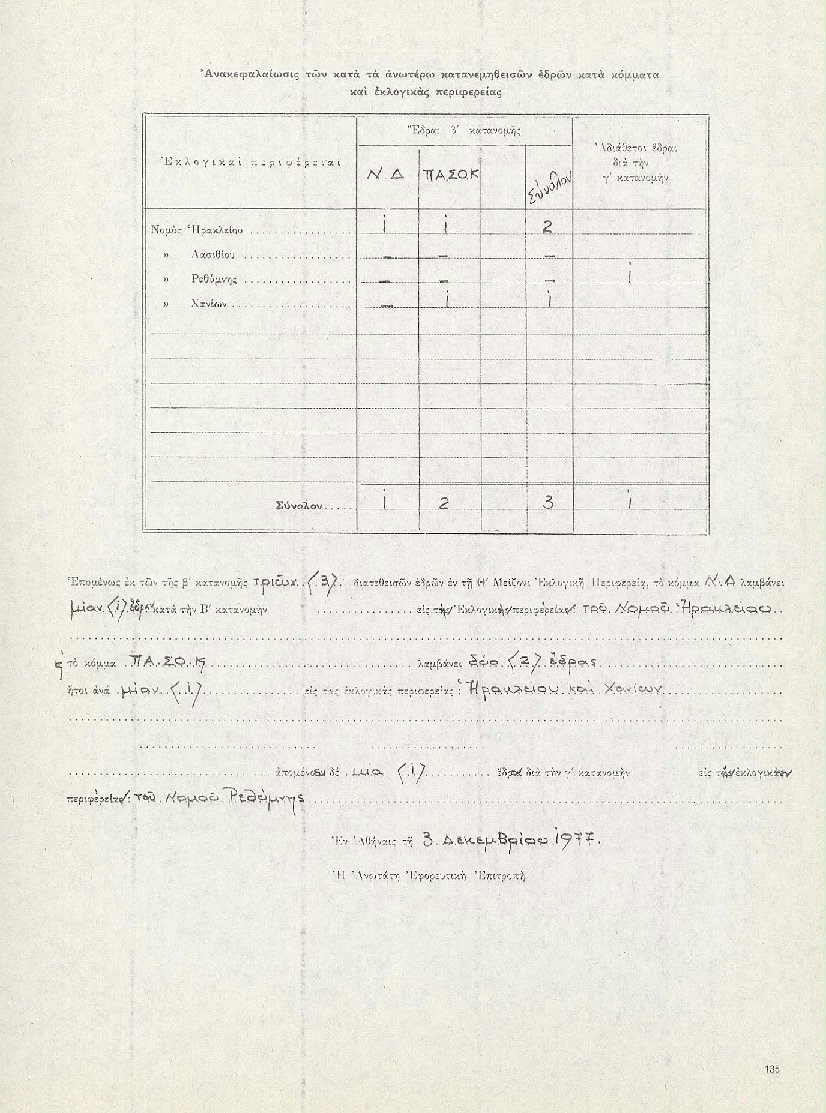 Ἀνακεφαλαίωσις τῶν κατὰ τὰ ἀνωτέρω κατανεμηθεισῶν ἑδρῶν κατὰ κόμματα
καὶ ἐκλογικὰς περιφερείας
Ἐκλογικαὶ περιφέρειαι
Ἕδραι β' κατανομῆς
Ν Δ ΠΑ.ΣΟ.Κ Σύνολον
Ἀδιάθετοι ἕδραι
διὰ τὴν
γ' κατανομὴν
Νομὸς Ἡρακλείου .................. 1 1 2
» Λασιθίου .................. – – –
» Ρεθύμνης .................. – – – 1
» Χανίων .................. – 1 1
Σύνολον..... 1 2 3 1
Ἑπομένως ἐκ τῶν τῆς β' κατανομῆς τριῶν (3) διατεθεισῶν ἑδρῶν ἐν τῇ Θ' Μείζονι Ἐκλογικῇ Περιφερείᾳ, τὸ κόμμα Ν.Δ λαμβάνει
μίαν (1) ἕδραν κατὰ τὴν Β' κατανομὴν .................. εἰς τὴν Ἐκλογικὴν περιφέρειαν τοῦ Νομοῦ Ἡρακλείου..
τὸ κόμμα ΠΑ.ΣΟ.Κ .................. λαμβάνει δύο (2) ἕδρας
ἤτοι ἀνὰ μίαν (1) .................. εἰς τὰς ἐκλογικὰς περιφερείας: Ἡρακλείου καὶ Χανίων
ἀπομένει δὲ μία (1) .................. ἕδρα διὰ τὴν γ' κατανομὴν εἰς τὴν ἐκλογικὴν
περιφέρειαν: τοῦ Νομοῦ Ρεθύμνης
Ἐν Ἀθήναις τῇ 3 Δεκεμβρίου 1977.
Ἡ Ἀνωτάτη Ἐφορευτικὴ Ἐπιτροπὴ
135